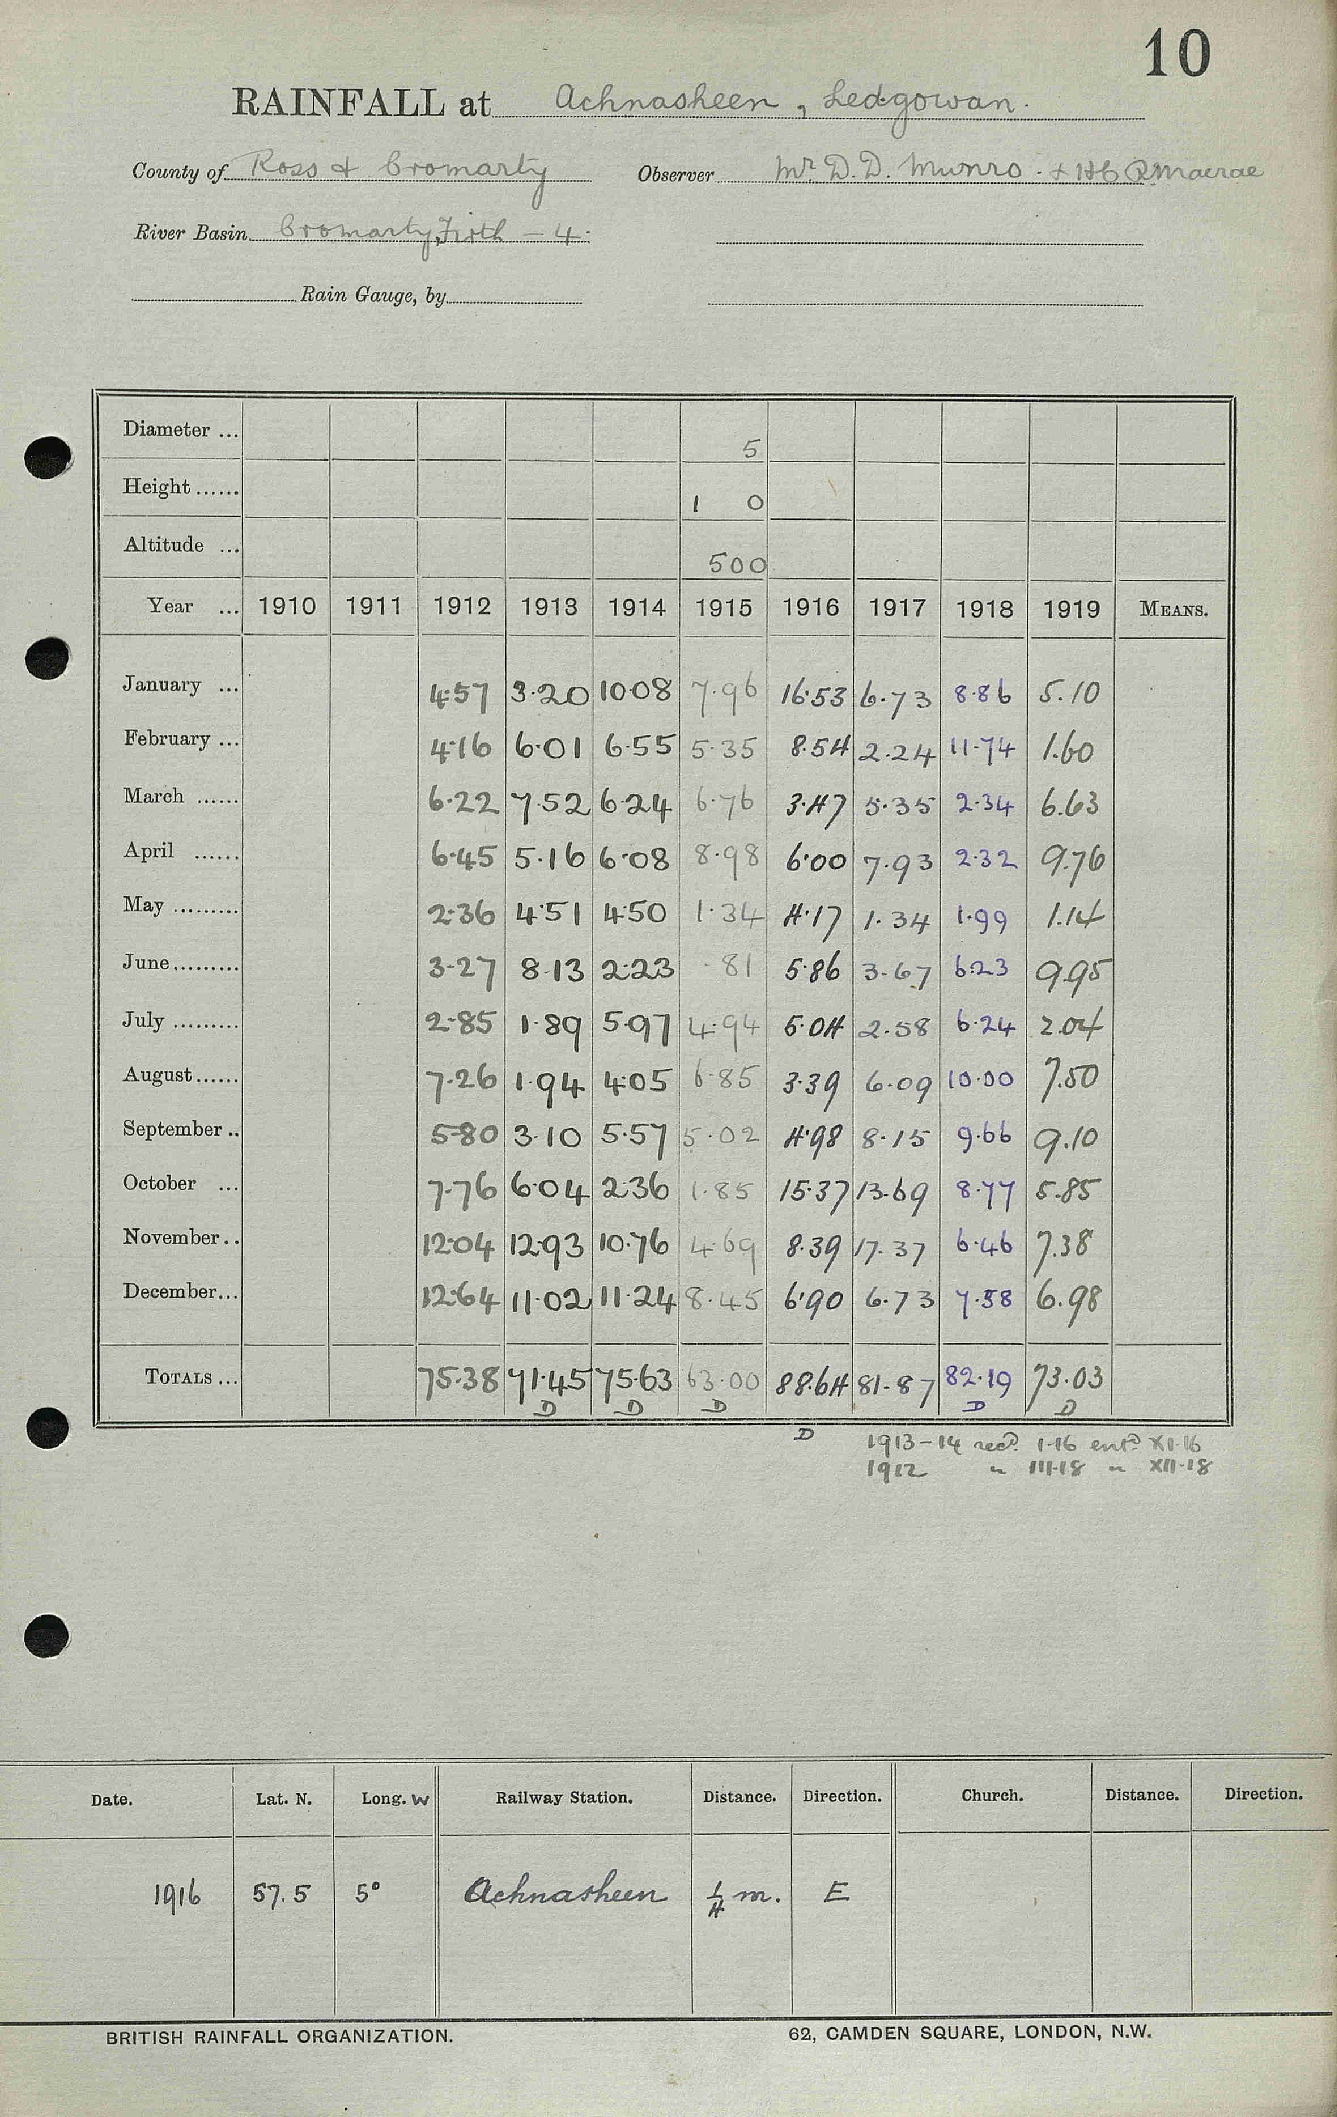 10
RAINFALL at Achnasheen, Ledgowan.
County of Ross & Cromarty Observer Mr D. D. Munro. & R Macrae
River Basin Cromarty Firth - 4.
Rain Gauge, by
Diameter ... 5
Height ...... 1 0
Altitude ... 500
Year ... 1910 1911 1912 1913 1914 1915 1916 1917 1918 1919 MEANS.
January ... 4.57 3.20 10.08 7.96 16.53 6.73 8.86 5.10
February ... 4.16 6.01 6.55 5.35 8.54 2.24 11.74 1.60
March ...... 6.22 7.52 6.24 6.76 3.47 5.35 2.34 6.63
April ...... 6.45 5.16 6.08 8.98 6.00 7.93 2.32 9.76
May ......... 2.36 4.51 4.50 1.34 4.17 1.34 1.99 1.14
June......... 3.27 8.13 2.23 .81 5.86 3.67 6.23 9.95
July ......... 2.85 1.89 5.97 4.94 5.04 2.58 6.24 2.04
August...... 7.26 1.94 4.05 6.85 3.39 6.09 10.00 7.50
September.. 5.80 3.10 5.57 5.02 4.98 8.15 9.66 9.10
October ... 7.76 6.04 2.36 1.85 15.37 13.69 8.77 5.85
November.. 12.04 12.93 10.76 4.69 8.39 17.37 6.46 7.38
December... 12.64 11.02 11.24 8.45 6.90 6.73 7.58 6.98
TOTALS ... 75.38 71.45 75.63 63.00 88.64 81.87 82.19 73.03
D D D D D
D
1913-14 recd. 1.16 entd XI.16
1912 " III.18 " XII.18
Date. Lat. N. Long. W Railway Station. Distance. Direction. Church. Distance. Direction.
1916 57.5 5° Achnasheen 1/4 m. E
BRITISH RAINFALL ORGANIZATION. 62, CAMDEN SQUARE, LONDON, N.W.